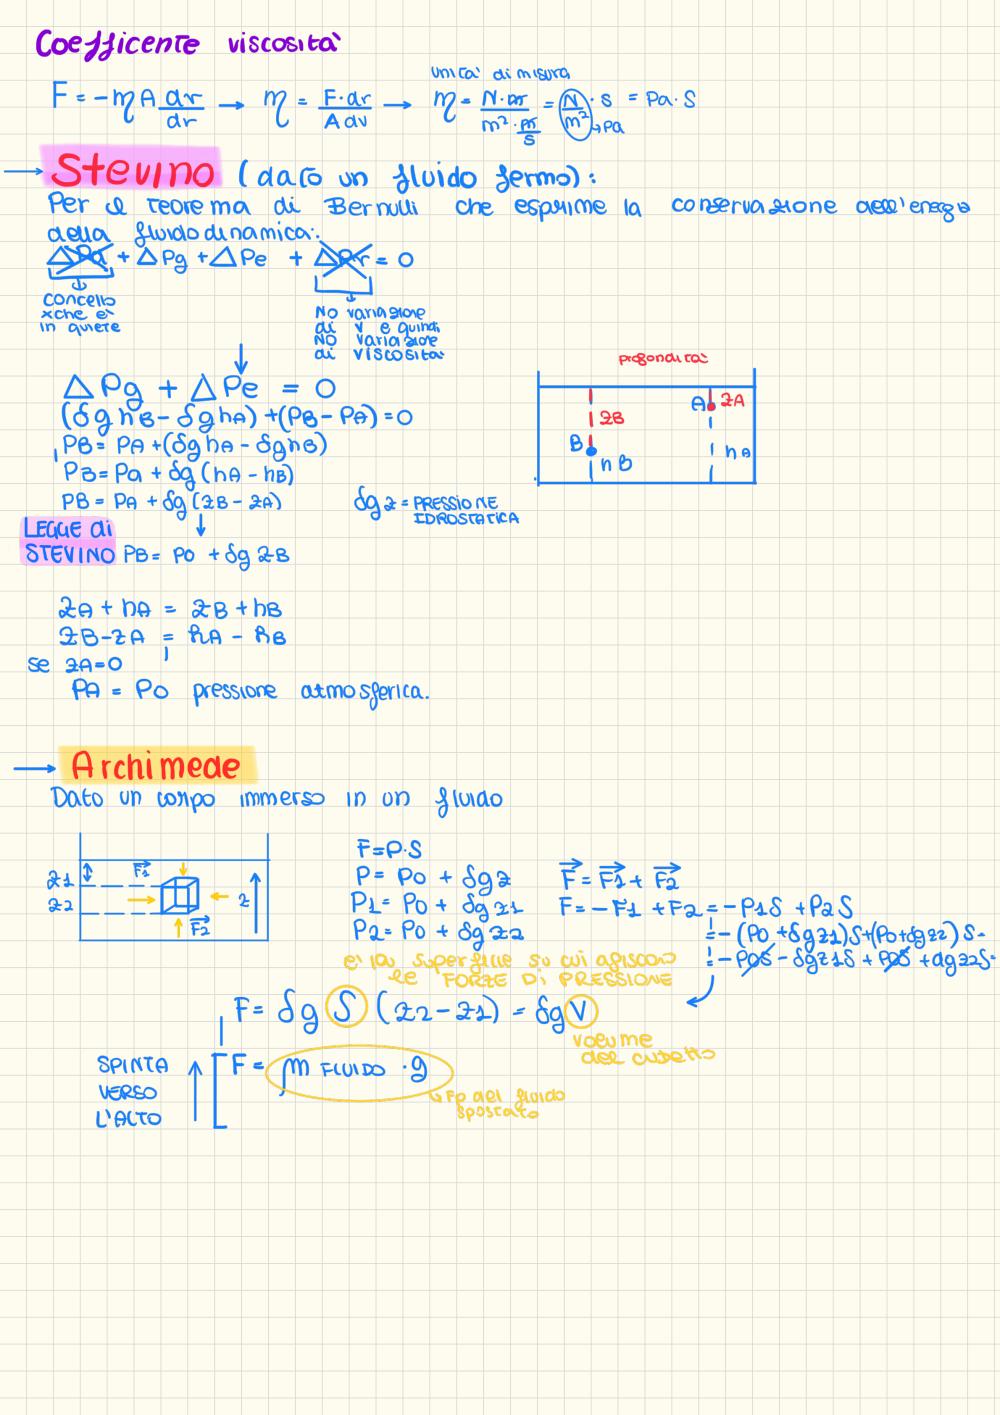 Coefficente viscosità
unità di misura
F = -η A dr/dr → η = F·dr/A dv → η = N·m/m²·m/s = N/m² · s = Pa·S
↳Pa
→ Stevino (dato un fluido fermo):
Per il teorema di Bernulli che esprime la conservazione dell'energia
della fluidodinamica:
ΔPd + ΔPg + ΔPe + ΔPr = 0
concello
xche è
in quiete
No variazione
di v e quindi
NO variazione
di viscosità
ΔPg + ΔPe = 0
(δghB - δghA) + (PB - PA) = 0
PB = PA + (δghA - δghB)
PB = Pa + δg (hA - hB)
PB = PA + δg (zB - zA)
δgz = PRESSIONE
IDROSTATICA
profondità
A zA
zB
B
hB
hA
LEGGE di
STEVINO PB = PO + δg zB
zA + hA = zB + hB
zB - zA = hA - hB
se zA=0
PA = PO pressione atmosferica.
→ Archimede
Dato un corpo immerso in un fluido
z1
z2
F1
F2
z
F=P·S
P = PO + δgz
P1 = PO + δgz1
P2 = PO + δgz2
F = F1 + F2
F = -F1 + F2 = -P1S + P2S
= -(PO + δgz1)S + (PO + δgz2) S=
= -POS - δgz1S + POS + δgz2S=
è la superficie su cui agiscono
le FORZE Di PRESSIONE
F = δg S (z2 - z1) = δg V
volume
del cubetto
SPINTA
VERSO
L'ALTO
F = m FLUIDO · g
↳ Fp del fluido
spostato